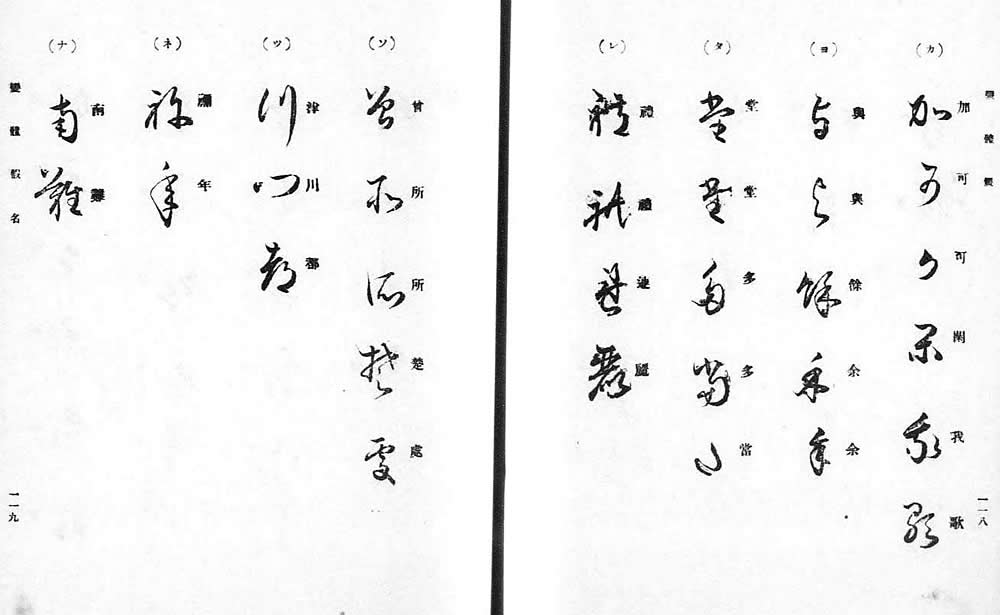 變體假
一一八
(カ)
加可可閑我歌
(ヨ)
與與餘余余
(タ)
堂堂多多當
(レ)
禮禮連麗
(ソ)
曾所所楚處
(ツ)
津川都
(ネ)
禰年
(ナ)
南難
變體假名
一一九